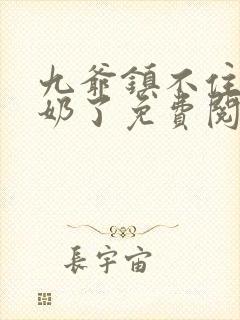 九爺鎮不住
奶了免費閱
長宇宙